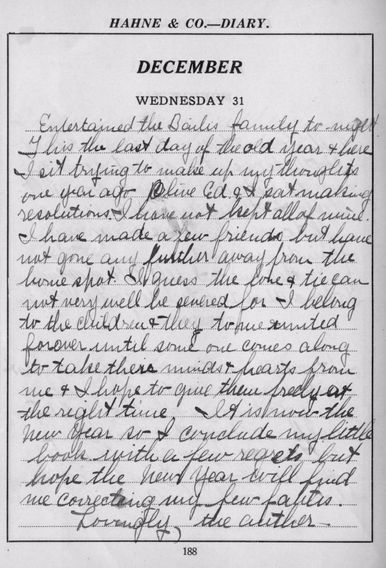 HAHNE & CO.—DIARY.
DECEMBER
WEDNESDAY 31
Entertained the Bailis family to night
This the last day of the old year & here
I sit trying to make up my thoughts
one year ago Olive Ed & I sat making
resolutions. I have not kept all of mine.
I have made a few friends but have
not gone any further away from the
home spot. I guess the love & tie can
not very well be severed for I belong
to the children & they to me united
forever until some one comes along
to take there minds & hearts from
me & I hope to give them freely at
the right time. It is now the
New Year so I conclude my little
book with a few regrets but
hope the New Year will find
me correcting my few faults.
Lovingly, the auther—
188